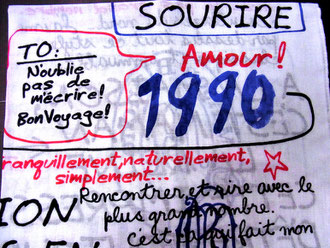 SOURIRE
TO:
N'oublie
pas de
m'écrire!
Bon Voyage!
Amour!
1990
tranquillement, naturellement,
simplement...
Rencontrer et rire avec le
plus grand nombre.
C'est ça qui fait mon